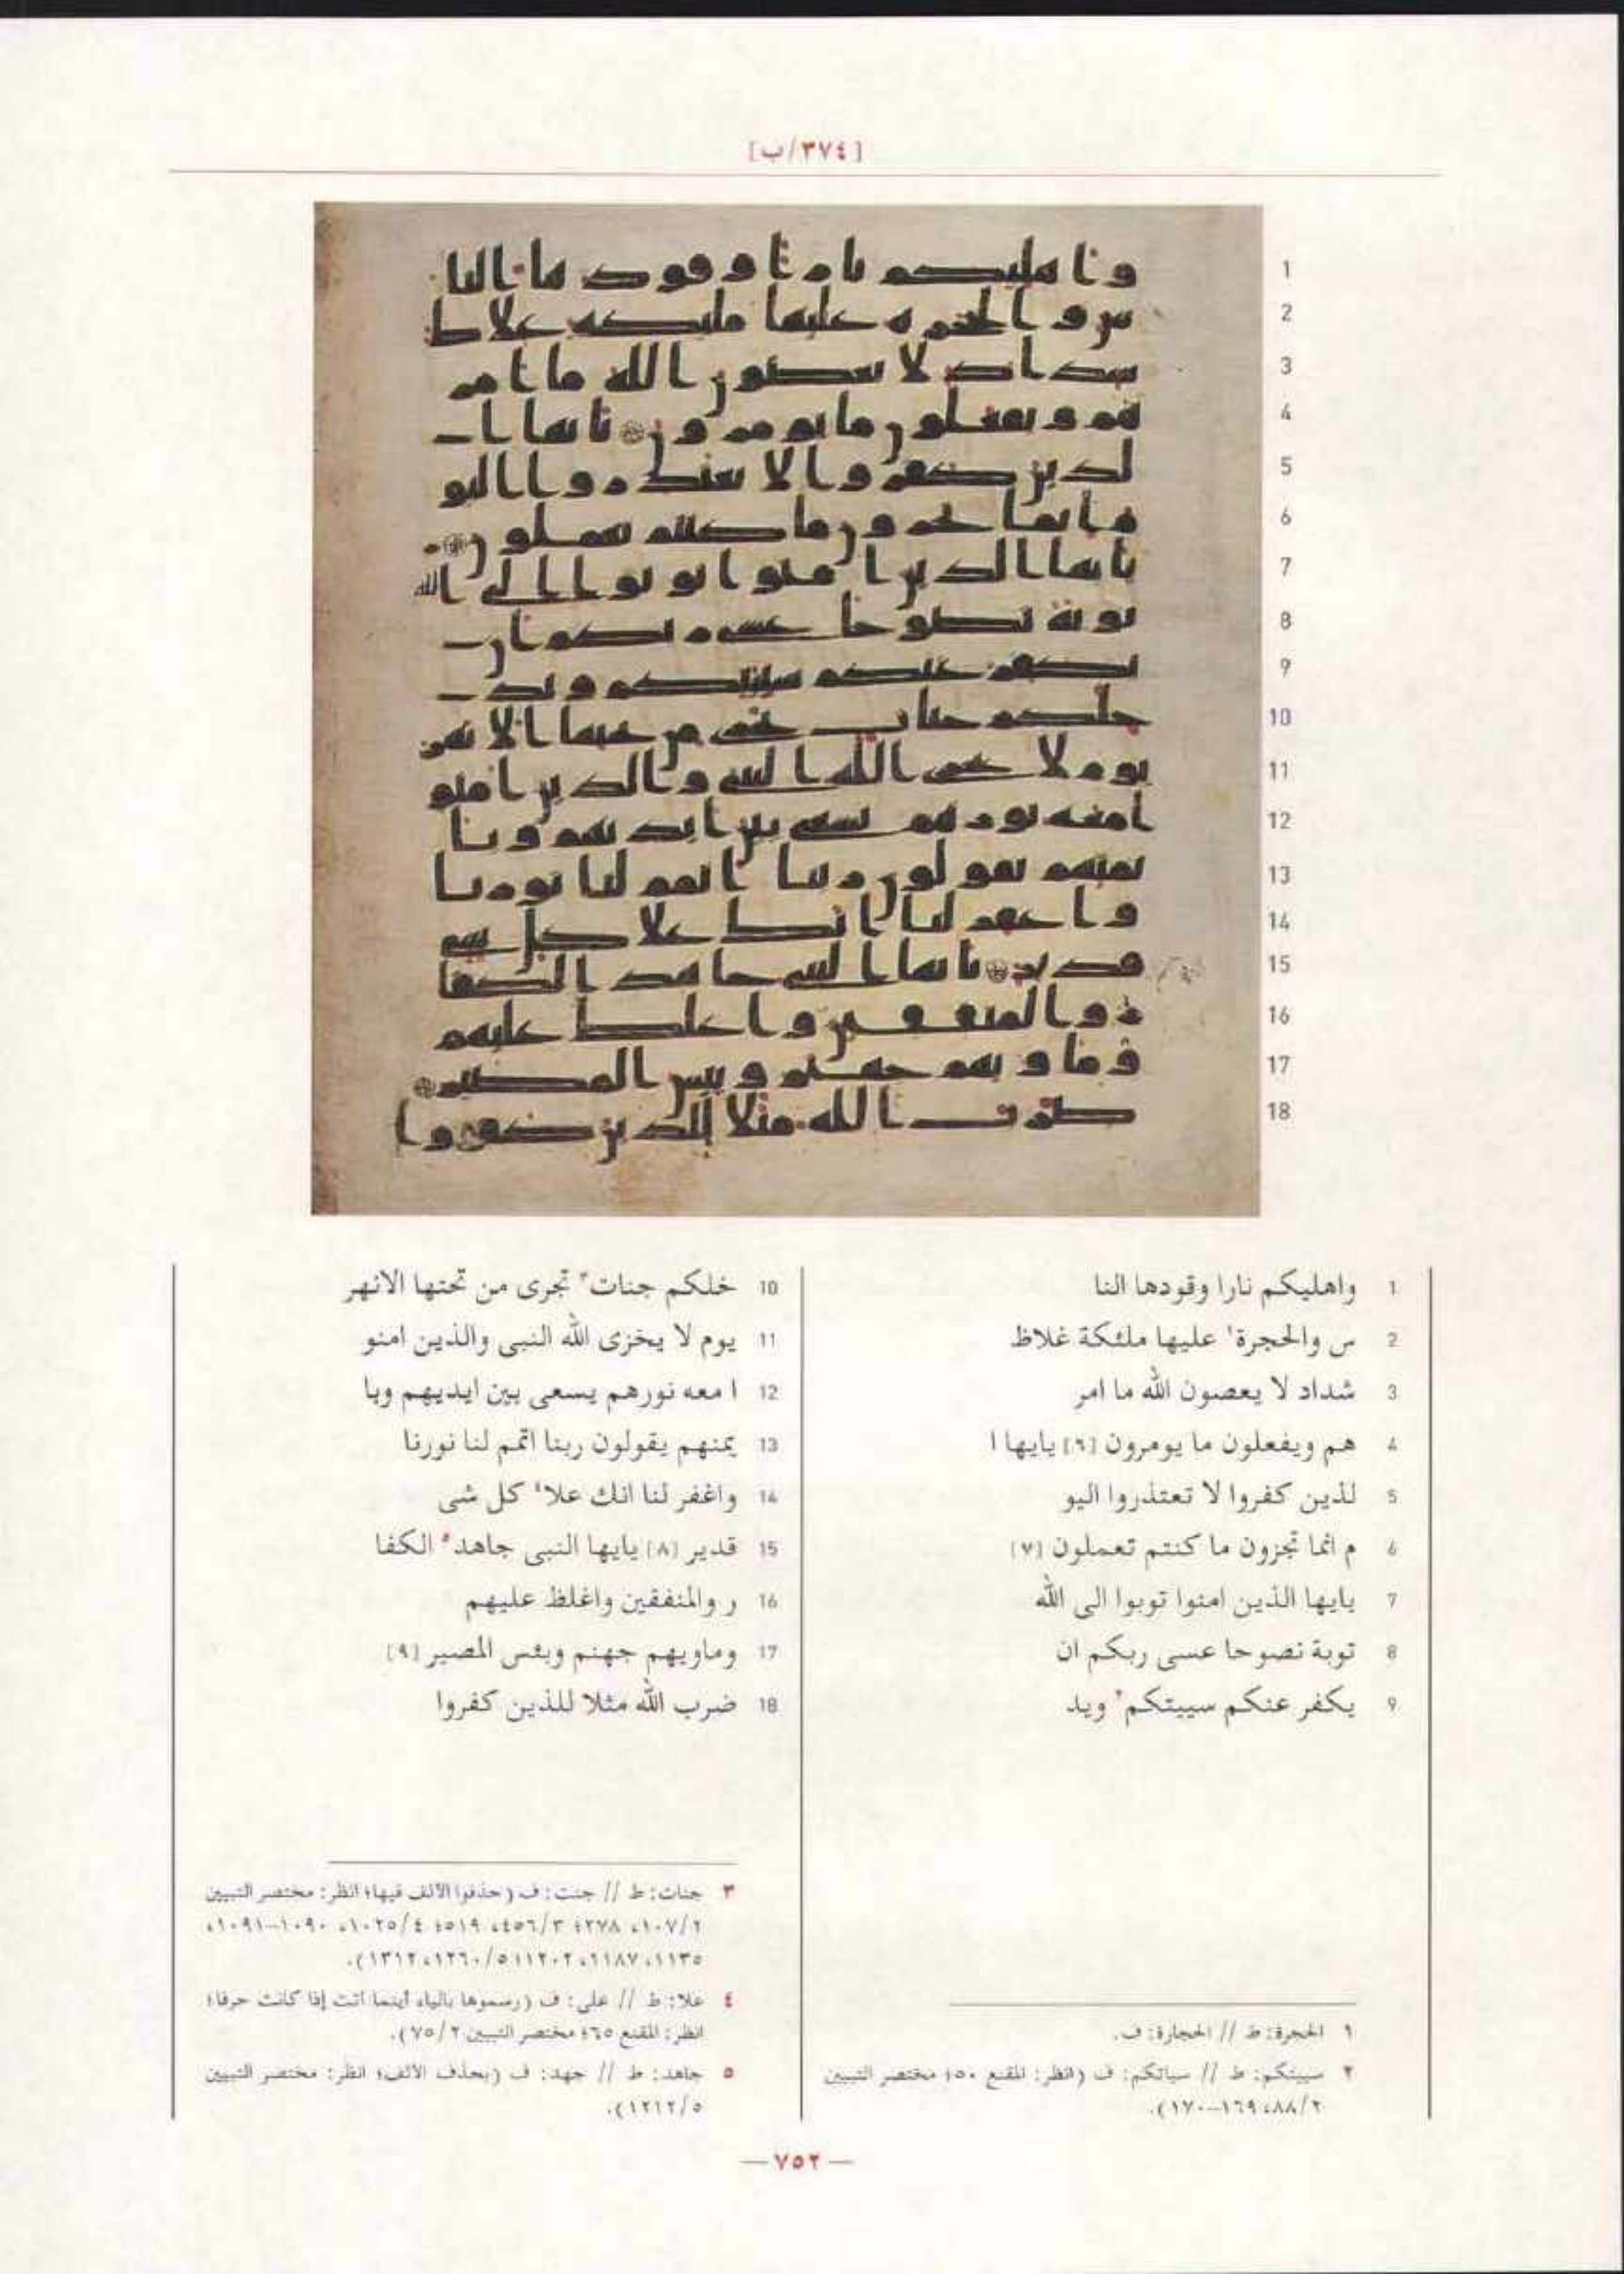 [٣٧٤/ب]
1 واهليكم نارا وقودها النا
2 س والحجرة١ عليها ملئكة غلاظ
3 شداد لا يعصون الله ما امر
4 هم ويفعلون ما يومرون [٦] يايها ا
5 لذين كفروا لا تعتذروا اليو
6 م انما تجزون ما كنتم تعملون [٧]
7 يايها الذين امنوا توبوا الى الله
8 توبة نصوحا عسى ربكم ان
9 يكفر عنكم سييتكم٢ ويد
١ الحجرة: ط // الحجارة: ف.
٢ سييتكم: ط // سياتكم: ف (انظر: المقنع ٥٠؛ مختصر التبيين
٢/٨٨، ١٦٩-١٧٠).
10 خلكم جنات٣ تجرى من تحتها الانهر
11 يوم لا يخزى الله النبى والذين امنو
12 ا معه نورهم يسعى بين ايديهم وبا
13 يمنهم يقولون ربنا اتمم لنا نورنا
14 واغفر لنا انك علا٤ كل شى
15 قدير [٨] يايها النبى جاهد٥ الكفا
16 ر والمنفقين واغلظ عليهم
17 وماويهم جهنم وبئس المصير [٩]
18 ضرب الله مثلا للذين كفروا
٣ جنات: ط // جنت: ف (حذفوا الألف فيها؛ انظر: مختصر التبيين
٢/١٠٧، ٢٧٨؛ ٣/٤٥٦، ٥١٩؛ ٤/١٠٢٥، ١٠٩٠-١٠٩١،
١١٣٥، ١١٨٧، ١٢٠٢؛ ٥/١٢٦٠، ١٣١٢).
٤ علا: ط // على: ف (رسموها بالياء أينما أتت إذا كانت حرفا؛
انظر: المقنع ٦٥؛ مختصر التبيين ٢/٧٥).
٥ جاهد: ط // جهد: ف (بحذف الألف؛ انظر: مختصر التبيين
٥/١٢١٢).
— ٧٥٢ —